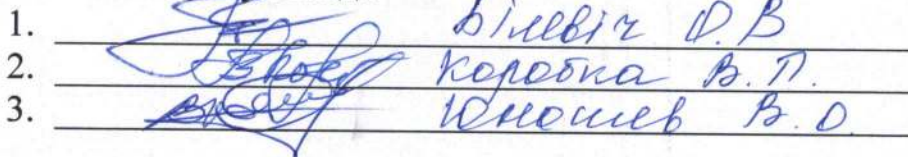 1. Білевіч О.В
2. Коробка В.П.
3. Юношев В.О.